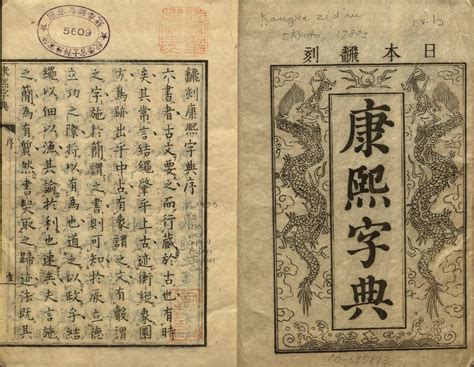 日本飜刻
康熙字典
飜刻康熙字典序
六書者古文要之而行藏於古也有時
矣其常言結繩肇乎上古迹衡縱象圓
方焉跡出乎中古有象謂之文有謂
之字施於簡謂之書則可知於厥立德
立功之際將以有為也道之以政乎結
繩以佃以漁其諭於利也速矣史言施
之簡為有然書契取之蹄迹法既其
序
5609